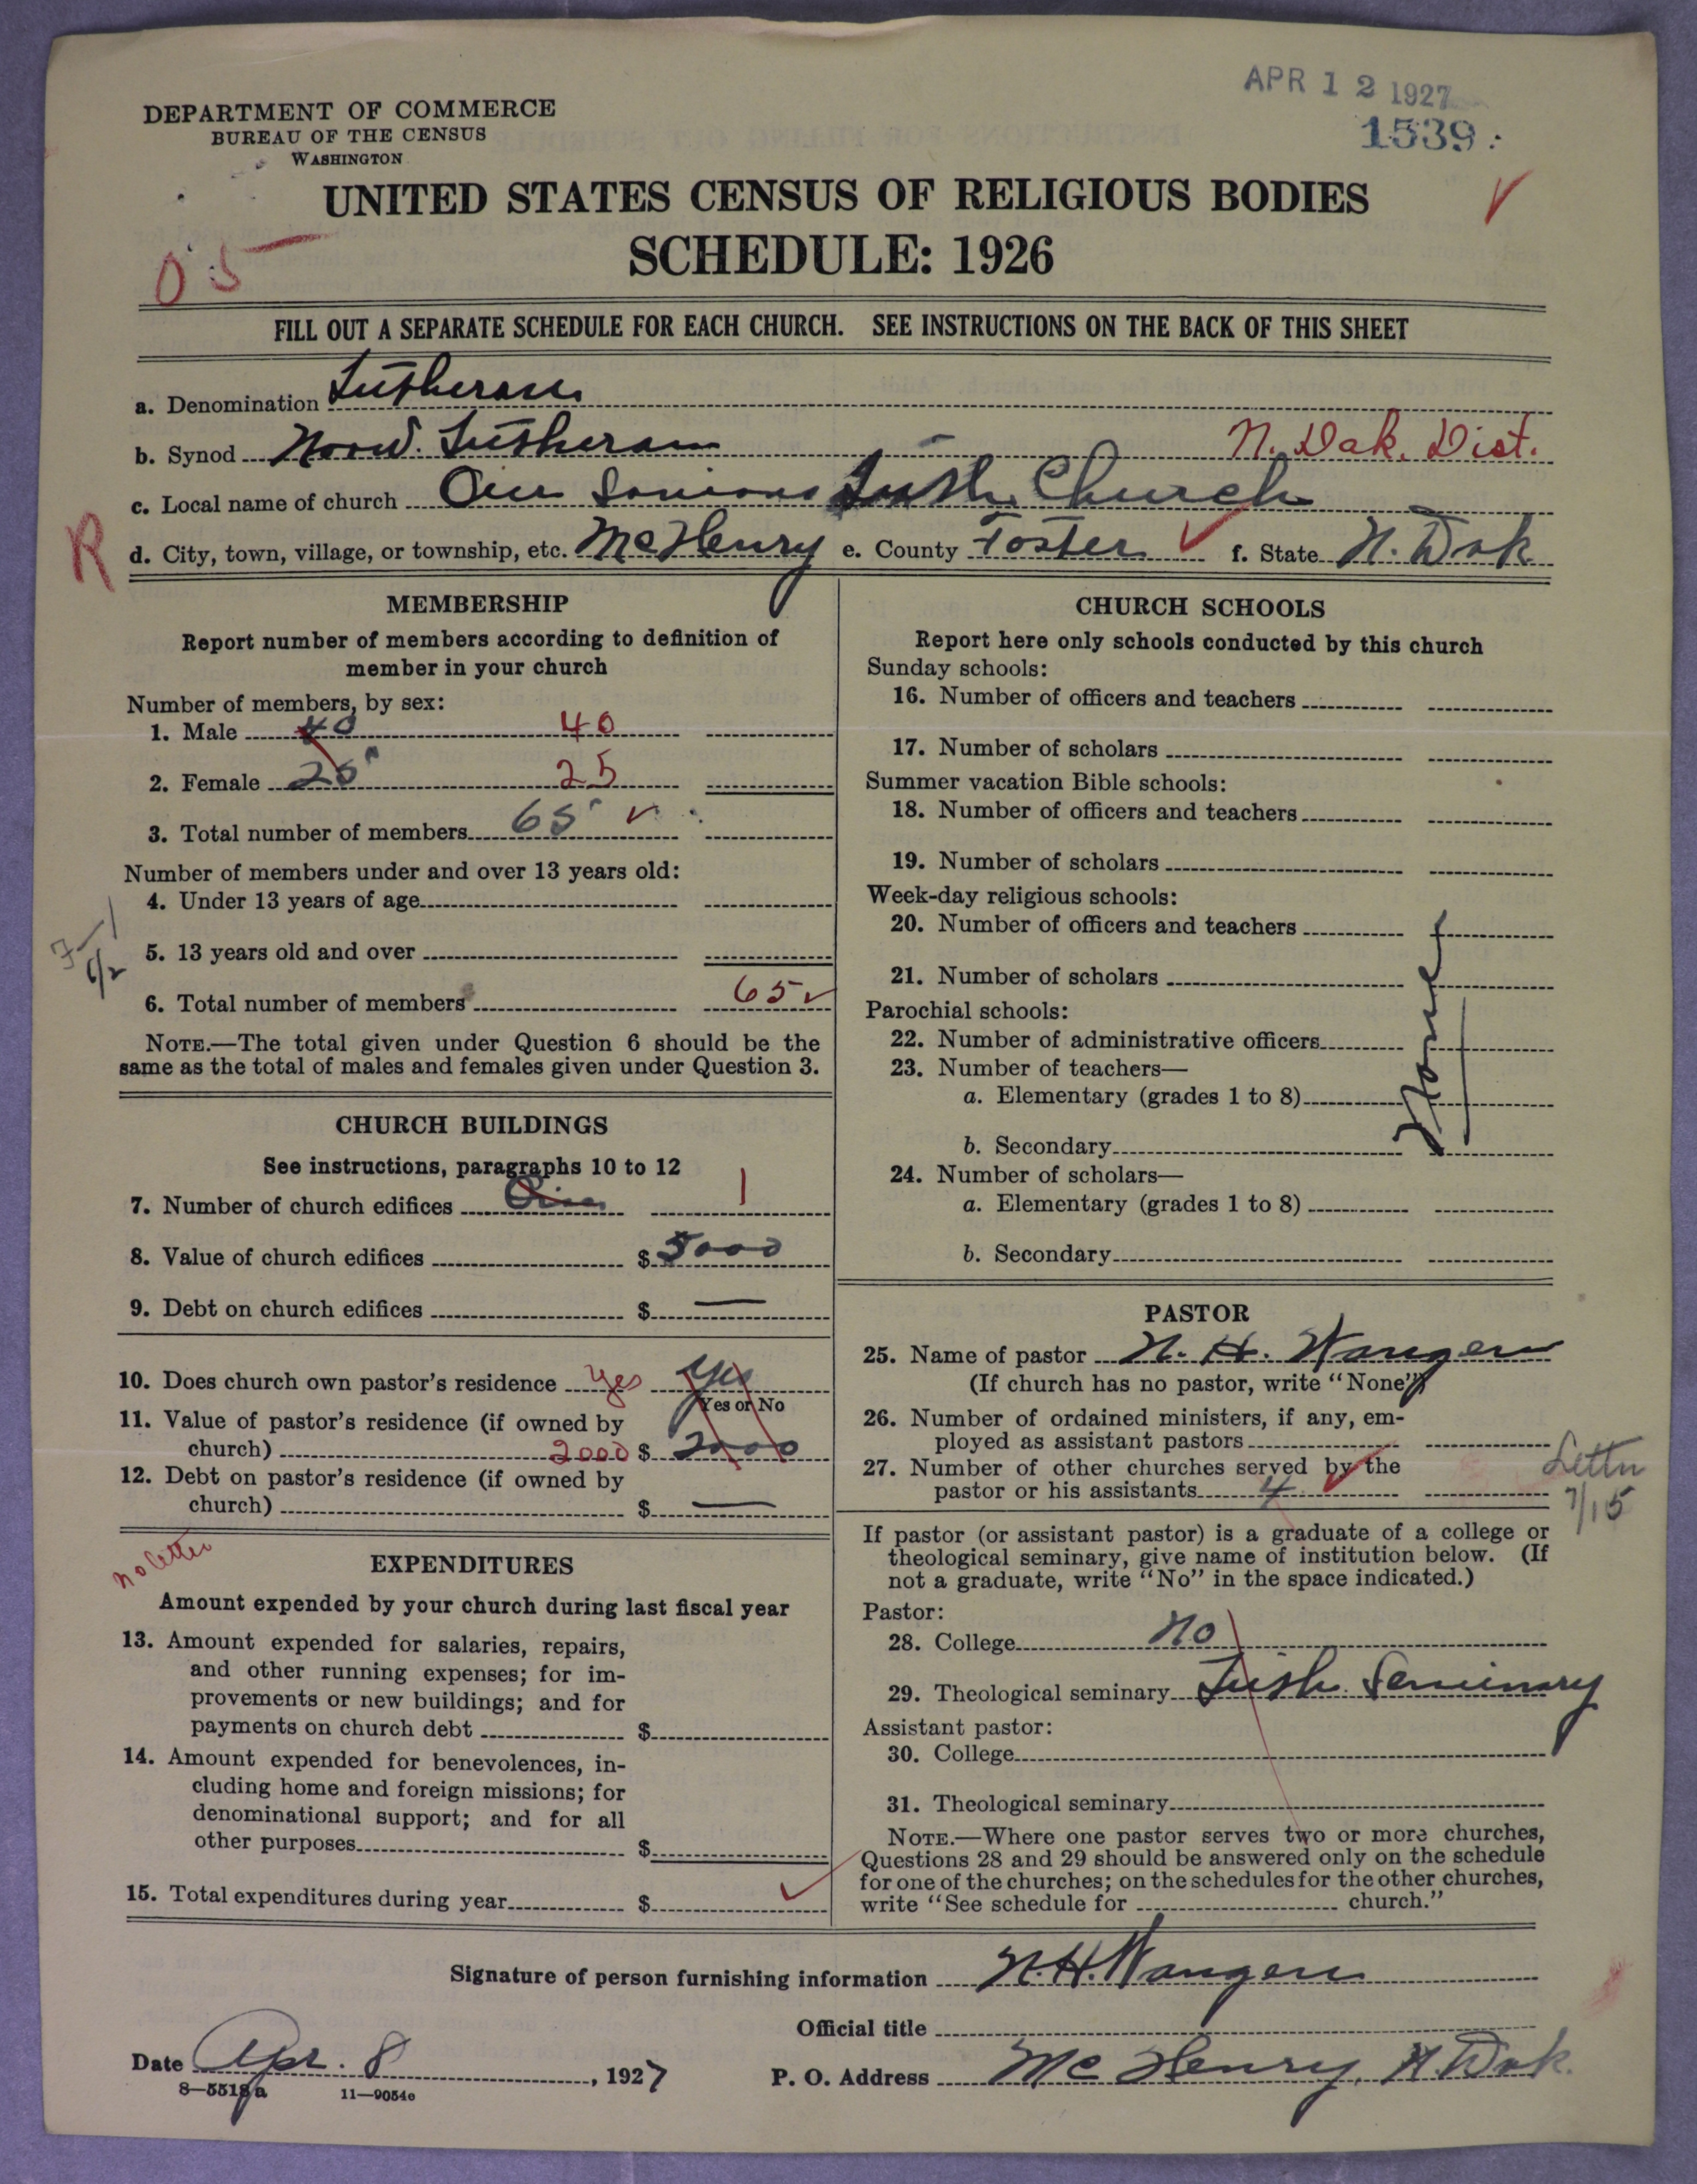 APR 12 1927
1539.
DEPARTMENT OF COMMERCE
BUREAU OF THE CENSUS
WASHINGTON
UNITED STATES CENSUS OF RELIGIOUS BODIES
SCHEDULE: 1926
05
FILL OUT A SEPARATE SCHEDULE FOR EACH CHURCH. SEE INSTRUCTIONS ON THE BACK OF THIS SHEET
a. Denomination Lutheran
b. Synod Norw. Lutheran N. Dak. Dist.
c. Local name of church Our Saviours Luth. Church
R
d. City, town, village, or township, etc. McHenry e. County Foster f. State N. Dak
MEMBERSHIP
Report number of members according to definition of
member in your church
Number of members, by sex:
1. Male 40 40
2. Female 25 25
3. Total number of members 65
Number of members under and over 13 years old:
4. Under 13 years of age
5. 13 years old and over
6. Total number of members 65
NOTE.—The total given under Question 6 should be the
same as the total of males and females given under Question 3.
CHURCH BUILDINGS
See instructions, paragraphs 10 to 12
7. Number of church edifices One 1
8. Value of church edifices $ 5000
9. Debt on church edifices $ —
10. Does church own pastor's residence Yes Yes
Yes or No
11. Value of pastor's residence (if owned by
church) 2000 $ 2000
12. Debt on pastor's residence (if owned by
church) $ —
no letter
EXPENDITURES
Amount expended by your church during last fiscal year
13. Amount expended for salaries, repairs,
and other running expenses; for im-
provements or new buildings; and for
payments on church debt $
14. Amount expended for benevolences, in-
cluding home and foreign missions; for
denominational support; and for all
other purposes $
15. Total expenditures during year $
CHURCH SCHOOLS
Report here only schools conducted by this church
Sunday schools:
16. Number of officers and teachers
17. Number of scholars
Summer vacation Bible schools:
18. Number of officers and teachers
19. Number of scholars
Week-day religious schools:
20. Number of officers and teachers
21. Number of scholars
Parochial schools:
22. Number of administrative officers
23. Number of teachers—
a. Elementary (grades 1 to 8)
b. Secondary
None
24. Number of scholars—
a. Elementary (grades 1 to 8)
b. Secondary
PASTOR
25. Name of pastor N. H. Wangen
(If church has no pastor, write "None")
26. Number of ordained ministers, if any, em-
ployed as assistant pastors
27. Number of other churches served by the
pastor or his assistants 4
Letter
7/15
If pastor (or assistant pastor) is a graduate of a college or
theological seminary, give name of institution below. (If
not a graduate, write "No" in the space indicated.)
Pastor:
28. College No
29. Theological seminary Luth. Seminary
Assistant pastor:
30. College
31. Theological seminary
NOTE.—Where one pastor serves two or more churches,
Questions 28 and 29 should be answered only on the schedule
for one of the churches; on the schedules for the other churches,
write "See schedule for church."
Signature of person furnishing information N.H. Wangen
Official title
Date Apr. 8, 1927 P. O. Address McHenry, N. Dak.
8—5518a 11—9054e